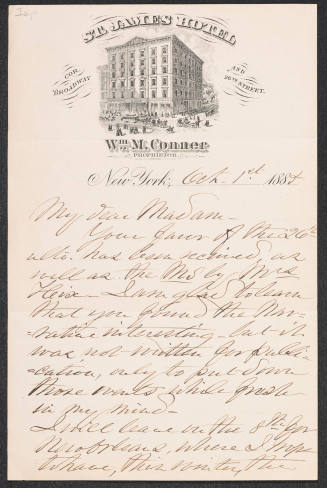 ST. JAMES HOTEL
COR.
BROADWAY
AND
26TH STREET.
Wm. M. Conner
PROPRIETOR.
New York, Oct. 1st 1884
My dear Madam -
Your favor of the 26th
ulto. has been received, as
well as the MS by Mrs
I am glad to learn
that you found the Nar-
-rative interesting - but it
was not written for publi-
-cation, only to put down
those events while fresh
in my mind -
I will leave on the 8th for
New Orleans, where I hope
to have, this winter, the